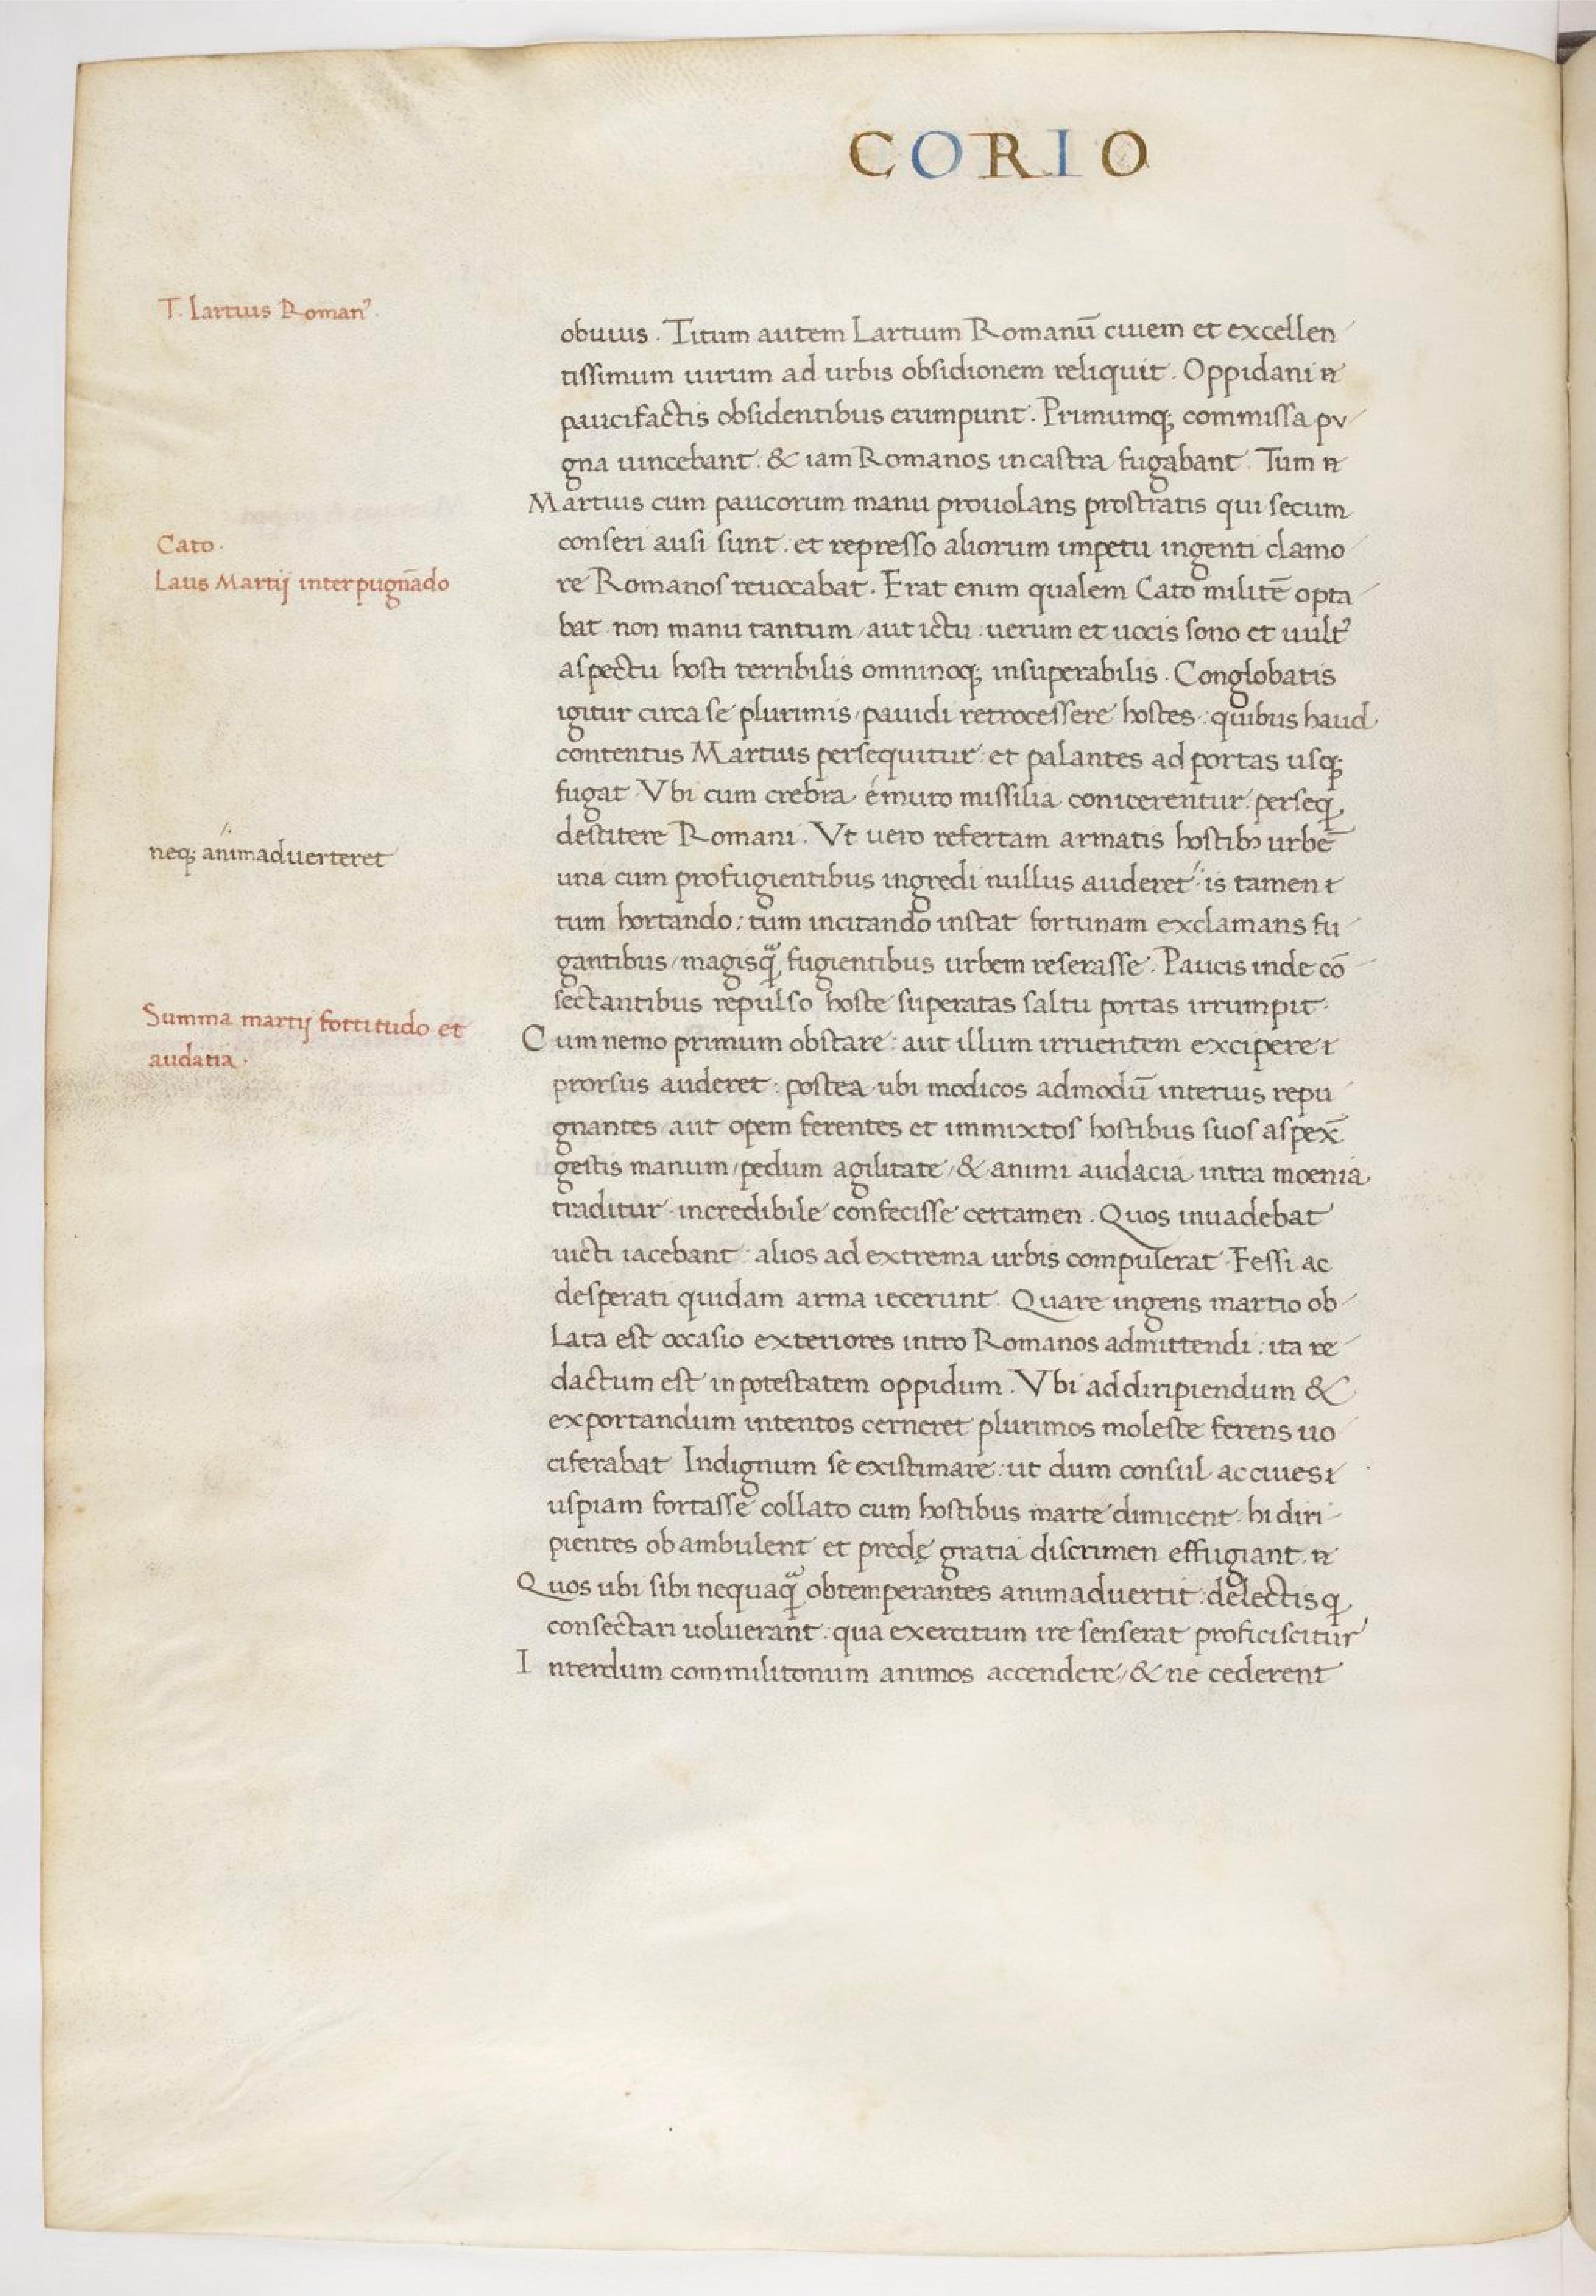 CORIO
T. Lartius Roman᾽.
obuius. Titum autem Lartium Romanū ciuem et excellen
tissimum uirum ad urbis obsidionem reliquit. Oppidani
paucifactis obsidentibus erumpunt. Primumq; commissa pu
gna uincebant: & iam Romanos in castra fugabant. Tum
Martius cum paucorum manu prouolans prostratis qui secum
Cato.
conseri ausi sunt: et represso aliorum impetu ingenti clamo
Laus Martij inter pugnādo
re Romanos reuocabat. Erat enim qualem Cato militē opta
bat non manu tantum / aut ictu: uerum et uocis sono et uult᾽
aspectu hosti terribilis omninoq; insuperabilis. Conglobatis
igitur circa se plurimis / pauidi retrocessere hostes: quibus haud
contentus Martius persequitur: et palantes ad portas usq;
fugat. Vbi cum crebra é muro missilia conicerentur: perseq
destitere Romani. Vt uero refertam armatis hostibꝫ urbē
neq; animaduerteret
una cum profugientibus ingredi nullus auderet: is tamen
tum hortando: tum incitando instat fortunam exclamans fu
gantibus / magisq̃ fugientibus urbem reserasse. Paucis inde cō
sectantibus repulso hoste superatas saltu portas irrumpit.
Summa martij fortitudo et
audatia.
Cum nemo primum obstare: aut illum irruentem excipere
prorsus auderet: postea ubi modicos admodū interius repu
gnantes / aut opem ferentes et immixtos hostibus suos aspex̄
gestis manum / pedum agilitate / & animi audacia intra moenia
traditur incredibile confecisse certamen. Quos inuadebat
uicti iacebant: alios ad extrema urbis compulerat. Fessi ac
desperati quidam arma iecerunt. Quare ingens martio ob
lata est occasio exteriores intro Romanos admittendi: ita re
dactum est in potestatem oppidum. Vbi ad diripiendum &
exportandum intentos cerneret plurimos moleste ferens uo
ciferabat. Indignum se existimare: ut dum consul ac ciues
uspiam fortasse collato cum hostibus marte dimicent: hi diri
pientes obambulent et predę gratia discrimen effugiant.
Quos ubi sibi nequaq̃ obtemperantes animaduertit: delectis q
consectari uoluerant: qua exercitum ire senserat proficiscitur
Interdum commilitonum animos accendere / & ne cederent